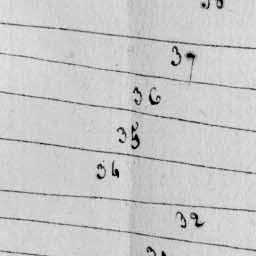 37
36
35
34
32